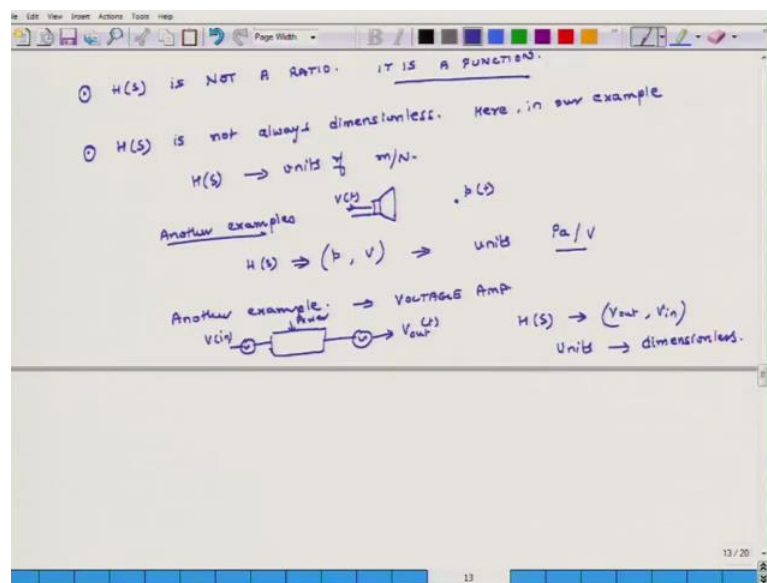 Edit View Insert Actions Tools Help
Page Width
B I
⊙ H(s) is NOT A RATIO. IT IS A FUNCTION.
⊙ H(s) is not always dimensionless. Here, in our example
H(s) → units of m/N.
V(t) p(t)
Another examples
H(s) ⇒ (p, V) ⇒ units Pa/V
Another example. → VOLTAGE AMP
Power
V(in) Vout(t) H(S) → (Vout, Vin)
Units → dimensionless.
13 / 20
13